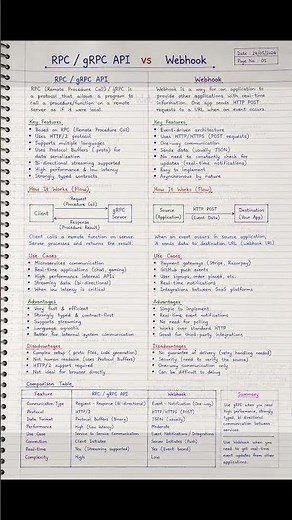 RPC / gRPC API vs Webhook
Date : 24/05/2024
Page No : 01
RPC / gRPC API
RPC (Remote Procedure Call) / gRPC is
a protocol that allows a program to
call a procedure/function on a remote
server as if it were local.
Key Features
• Based on RPC (Remote Procedure Call)
• Uses HTTP/2 protocol
• Supports multiple languages
• Use Protocol Buffers (.proto) for
data serialization
• Bi-directional streaming supported
• High performance & low latency
• Strongly typed contracts
How It Works (Flow)
Request
(Procedure Call)
Client
gRPC
Server
Response
(Procedure Result)
Client calls a remote function on server.
Server processes and returns the result.
Use Cases
• Microservices communication
• Real-time applications (chat, gaming)
• High performance internal APIs
• Streaming data (bi-directional)
• When low latency is critical
Advantages
• Very fast & efficient
• Strongly typed & contract-first
• Supports streaming
• Language agnostic
• Better for internal system communication
Disadvantages
• Complex setup (.proto files, code generation)
• Not human readable (uses Protocol Buffers)
• HTTP/2 support required
• Not ideal for browser directly
Webhook
Webhook is a way for an application to
provide other applications with real-time
information. One app sends HTTP POST
requests to a URL when an event occurs.
Key Features
• Event-driven architecture
• Uses HTTP/HTTPS (POST requests)
• One-way communication
• Sends data (usually JSON)
• No need to constantly check for
updates (real-time notifications)
• Easy to implement
• Asynchronous by nature
How It Works (Flow)
Source
(Application)
HTTP POST
(Event Data)
Destination
(Your App)
When an event occurs in source application,
it sends data to destination URL (webhook URL)
Use Cases
• Payment gateways (Stripe, Razorpay)
• GitHub push events
• User signups, order placed, etc.
• Real-time notifications
• Integrations between SaaS platforms
Advantages
• Simple to implement
• Real-time notifications
• No need for polling
• Works over standard HTTP
• Great for third-party integrations
Disadvantages
• No guarantee of delivery (retry handling needed)
• Security (need to verify the source)
• One-way communication only
• Can be difficult to debug
Comparison Table
Feature RPC / gRPC API Webhook
Communication Type Request - Response (Bi-directional) Event - Notification (One-way)
Protocol HTTP/2 HTTP/HTTPS (POST)
Data Format Protocol Buffers (Binary) JSON (usually)
Performance High (Low latency) Moderate
Use Case Service to Service Communication Event Notifications / Integrations
Connection Client Initiates Server Initiates (Push)
Real-time Yes (Streaming supported) Yes (Event based)
Complexity High Low
Summary
Use gRPC when you need
high performance, strongly
typed, bi-directional
communication between
services.
Use Webhook when you
need to get real-time
event updates from other
applications.